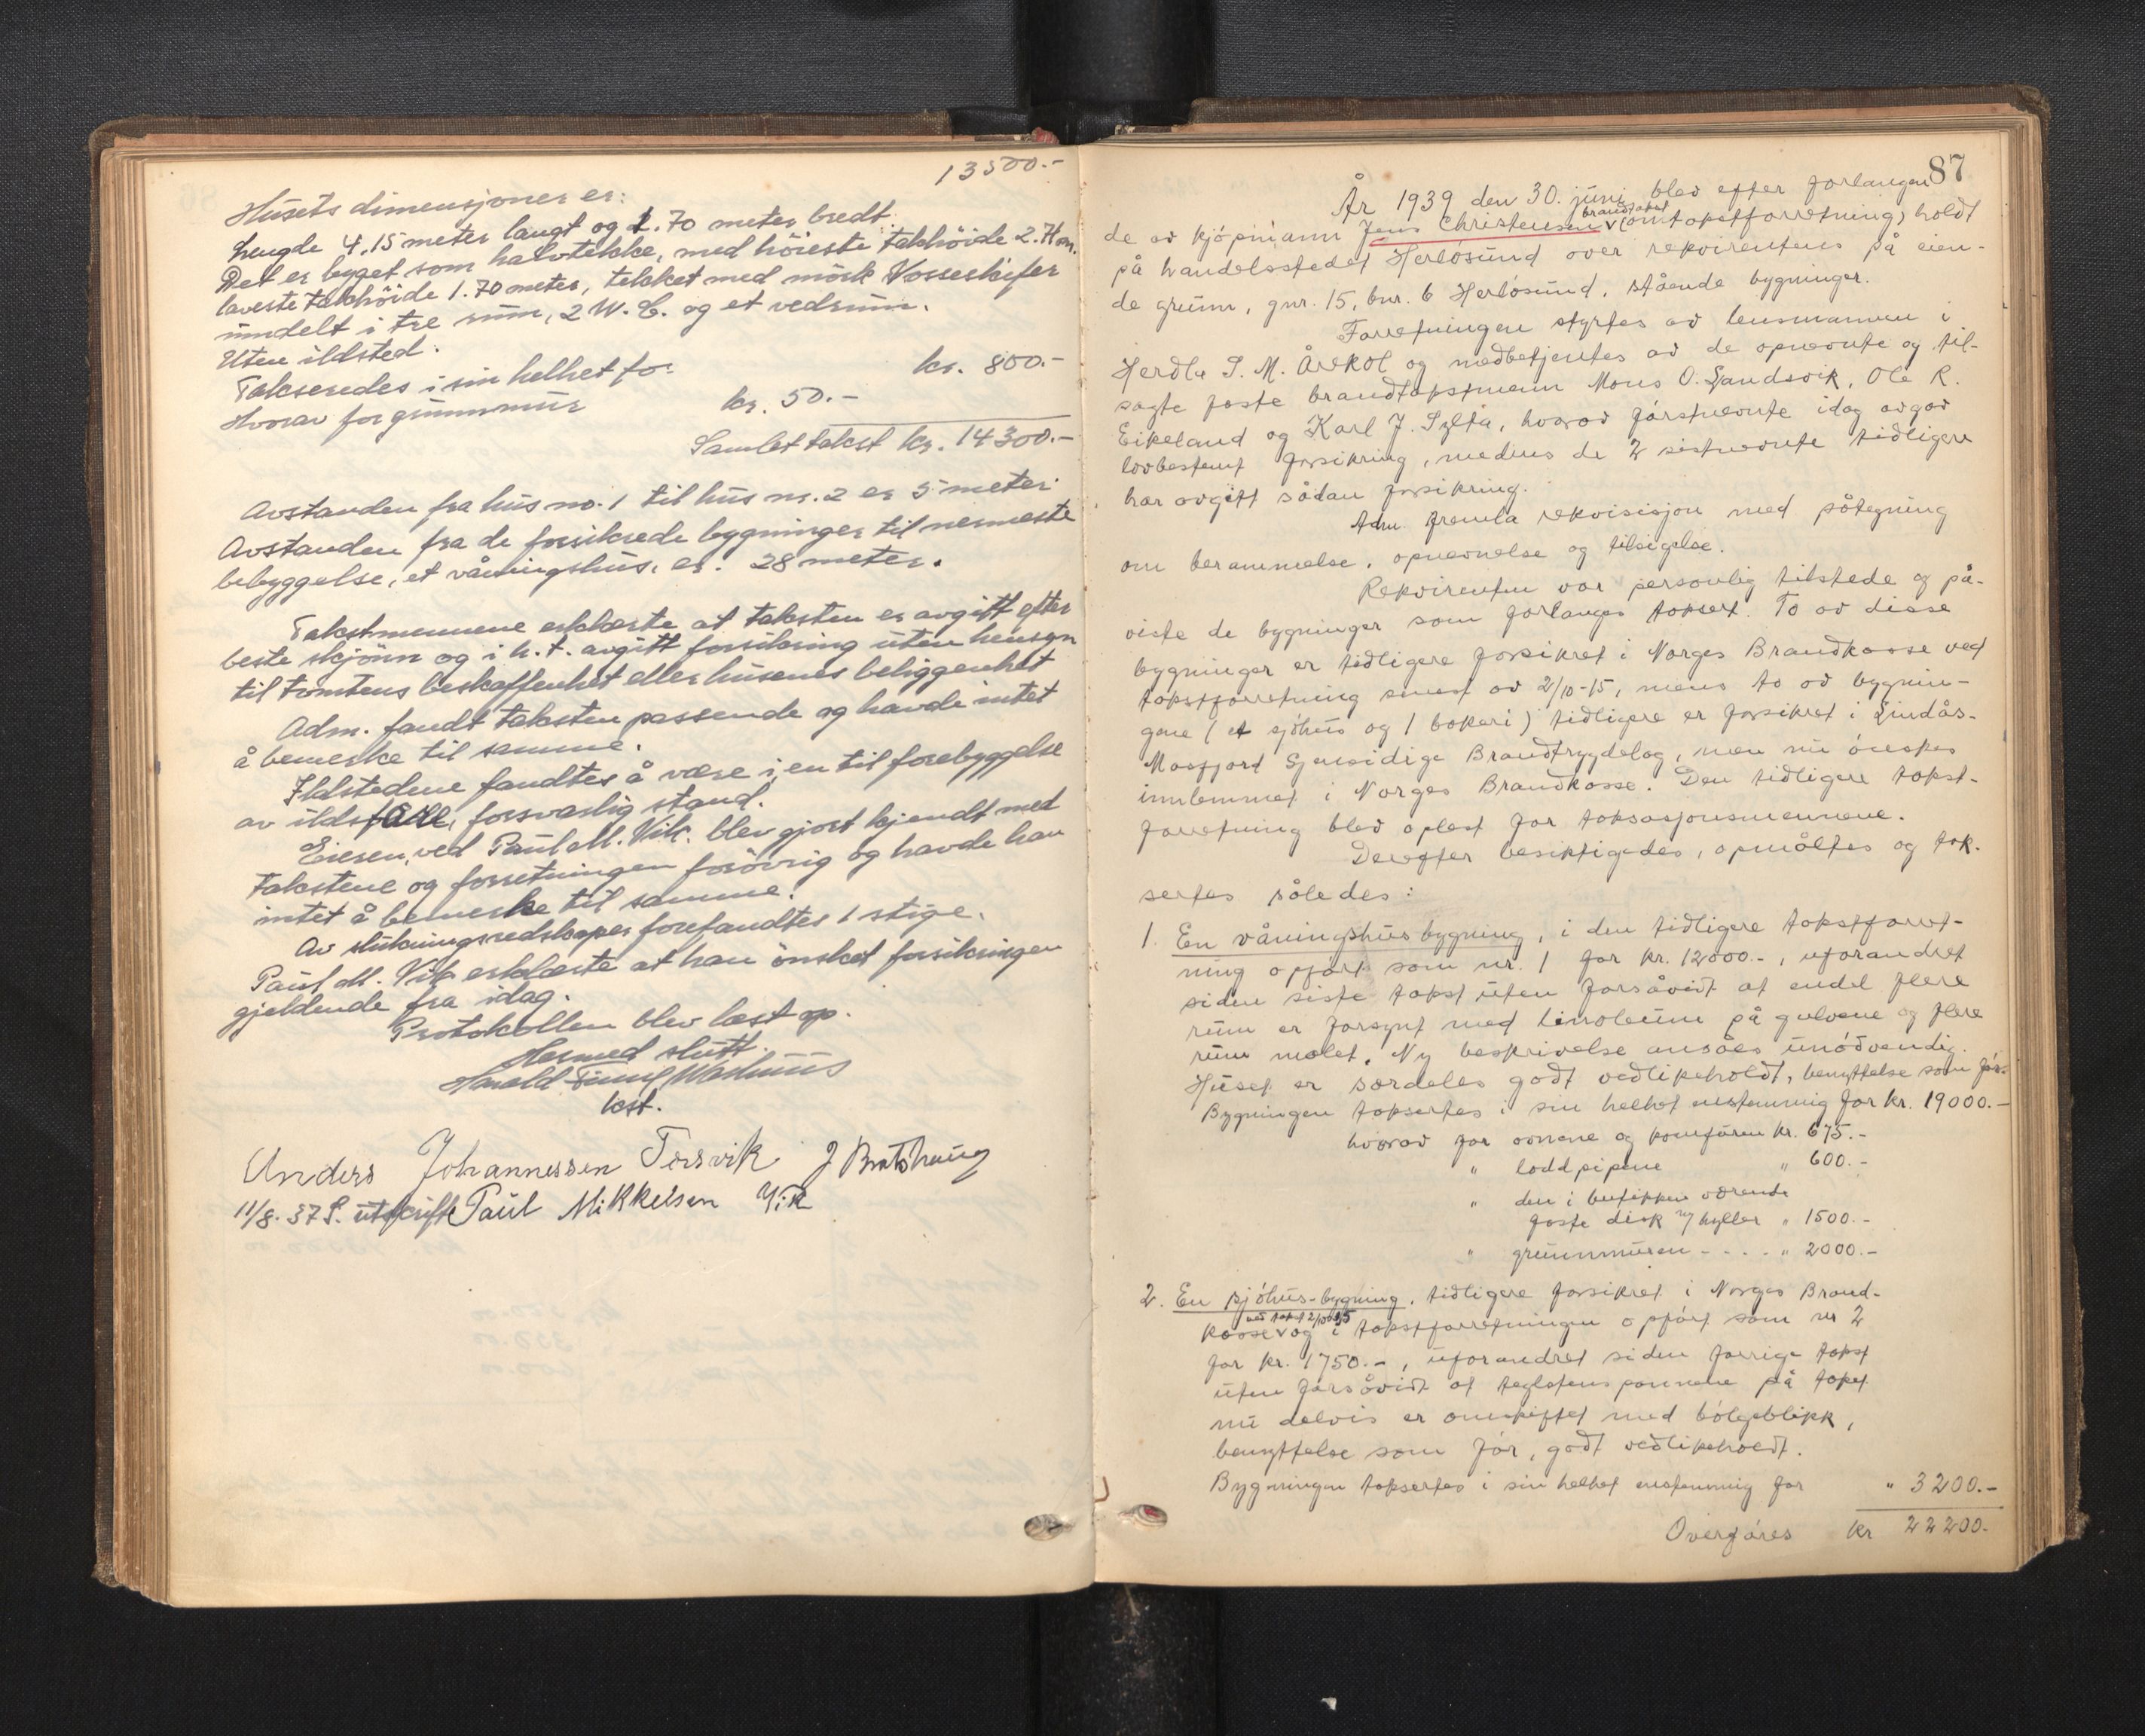 13500.-
Husets dimensjoner er:
Lengde 4.15 meter langt og 1.70 meter bredt.
Det er bygget som halvtekke, med høieste takhøide 2.70 m.
laveste takhøide 1.70 meter, tekket med mørk Vosseskifer
inndelt i tre rum, 2 W.C. og et vedrum.
Uten ildsted.
Takseredes i sin helhet for kr. 800.-
Hvorav for grunnmur kr. 50.-
Samlet takst kr. 14300.-
Avstanden fra hus no. 1 til hus nr. 2 er 5 meter.
Avstanden fra de forsikrede bygninger til nermeste
bebyggelse, et våningshus, er: 28 meter.
Takstmennene erklærte at taksten er avgitt efter
beste skjønn og i h.t. avgitt forsikring uten hensyn
til tomtens beskaffenhet eller husenes beliggenhet
Adm. fandt taksten passende og havde intet
å bemerke til samme.
Ildstedene fandtes å være i, en til forebyggelse
av ildsfare, forsvarlig stand.
Eieren, ved Paul M. Vik. blev gjort kjendt med
takstene og forretningen forøvrig og havde han
intet å bemerke til samme.
Av slukningsredskaper forefandtes 1 stige.
Paul M. Vik erklærte at han ønsket forsikringen
gjeldende fra idag.
Protokollen blev læst op.
Hermed slutt.
Harald
kst.
Anders Johannessen Tersvik J Bratshaug
11/8. 37 S. utskrift Paul Mikkelsen Vik
87
År 1939 den 30. juni blev efter forlangen
de av kjøpmann Jens Christensen v brandtakst (omtakstforretning) holdt
på handelsstedet Herløsund over rekvirentens på eien-
de grunn, gnr. 15, bnr. 6 Herløsund, stående bygninger.
Forretningen styrtes av lensmannen i
Herdla S. M. Årekol og medbetjentes av de opnevnte og til-
sagte faste brandtakstmenn Mons O. Sandsvik, Ole R.
Eikeland og Karl J. Sylta, hvorav førstnevnte idag avgav
lovbestemt forsikring, medens de 2 sistnevnte tidligere
har avgitt sådan forsikring.
Adm. fremla rekvisisjon med påtegning
om berammelse, opnevnelse og tilsigelse.
Rekvirenten var personlig tilstede og på-
viste de bygninger som forlanges taksert. To av disse
bygninger er tidligere forsikret i Norges Brandkasse ved
takstforretning senest av 2/10-15, mens to av bygnin-
gene (et sjøhus og 1 bakeri) tidligere er forsikret i Lindås-
Masfjord Gjensidige Brandtrygdelag, men nu ønskes
innlemmet i Norges Brandkasse. Den tidligere takst-
forretning blev oplest for taksasjonsmennene.
Derefter besiktigedes, opmåltes og tak-
sertes således:
1. En våningshusbygning, i den tidligere takstforret-
ning opført som nr. 1 for kr. 12000.-, uforandret
siden siste takst uten forsåvidt at endel flere
rum er forsynt med linoleum på gulvene og flere
rum malet. Ny beskrivelse ansåes unødvendig.
Huset er særdeles godt vedlikeholdt, benyttelse som før.
Bygningen taksertes i sin helhet enstemmig for kr. 19000.-
hvorav for ovnene og komfüren kr. 675.-
" loddpipene " 600.-
" den i butikken værende
faste disk m/ hyller " 1500.-
" grunnmuren - - . . " 2000.-
2. En sjøhus-bygning, tidligere forsikret i Norges Brand-
ved takst 2/10 1915
kasse v og i takstforretningen opført som nr 2
for kr. 1750.-, uforandret siden forrige takst
uten forsåvidt at teglstenspannene på taket
nu delvis er omskiftet med bølgeblikk,
benyttelse som før, godt vedlikeholdt.
Bygningen taksertes i sin helhet enstemmig for " 3200.-
Overføres kr 22200.-